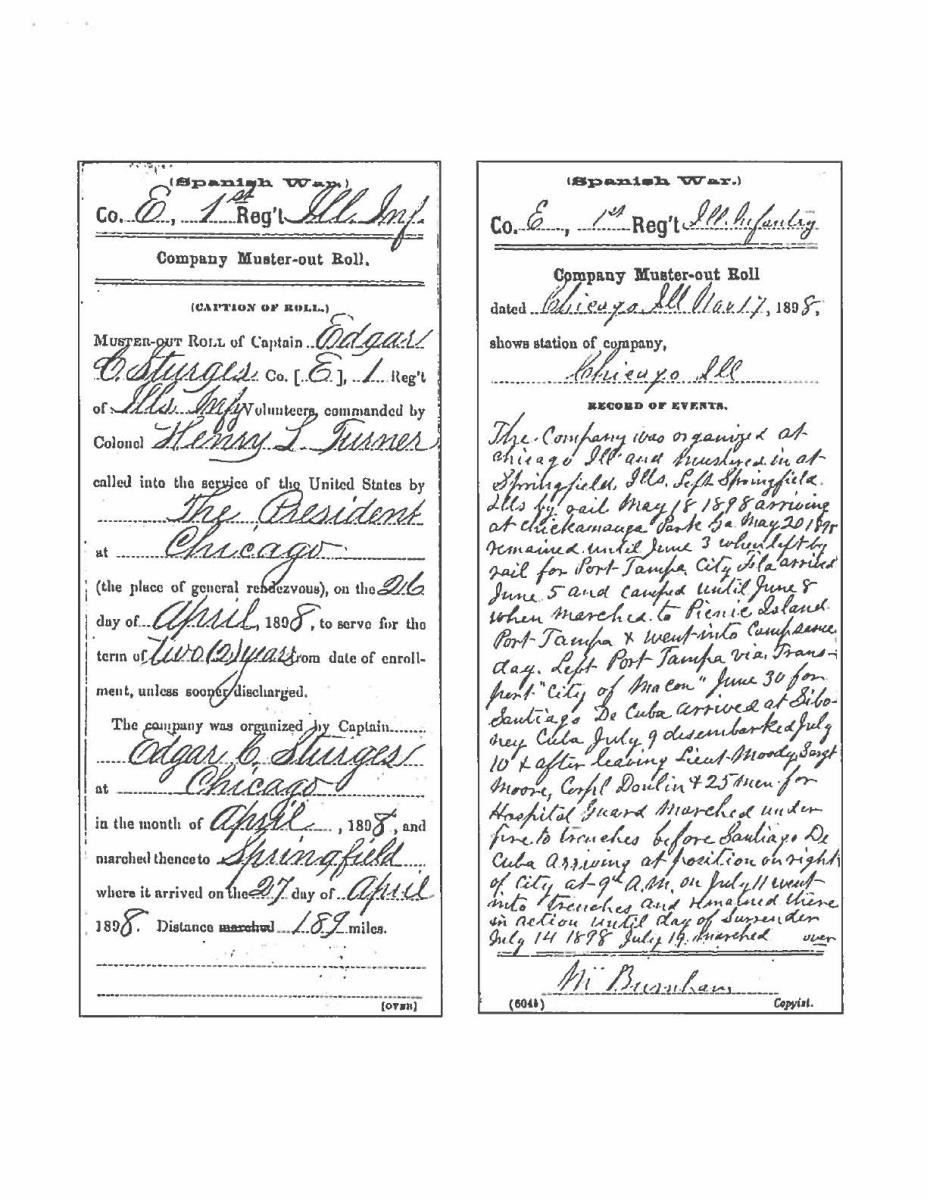 (Spanish War.)
Co. E, 1st Reg't Ill. Inf.
Company Muster-out Roll.
(CAPTION OF ROLL.)
MUSTER-OUT ROLL of Captain Edgar
C. Sturges Co. [E], 1 Reg't
of Ills Inf Volunteers, commanded by
Colonel Henry L Turner
called into the service of the United States by
The President
at Chicago
(the place of general rendezvous), on the 26
day of April, 1898, to serve for the
term of Two (2) years from date of enroll-
ment, unless sooner discharged.
The company was organized by Captain
Edgar C. Sturges
at Chicago
in the month of April, 1898, and
marched thence to Springfield
where it arrived on the 27 day of April
1898. Distance marched 189 miles.
[OVER]
(Spanish War.)
Co. E, 1st Reg't Ill. Infantry
Company Muster-out Roll
dated Chicago Ill Nov 17, 1898,
shows station of company,
Chicago Ill
RECORD OF EVENTS.
The Company was organized at
Chicago Ill and mustered in at
Springfield, Ills. Left Springfield
Ills by rail May 18 1898 arriving
at Chickamauga Park Ga May 20 1898
remained until June 3 when left by
rail for Port Tampa City Fla arrived
June 5 and camped until June 8
when marched to Picnic Island
Port Tampa & went into Camp same
day. Left Port Tampa via Trans-
port "City of Macon" June 30 for
Santiago De Cuba arrived at Sibo-
ney Cuba July 9 disembarked July
10 & after leaving Lieut Moody, Sergt
Moore, Corpl Donlin & 25 men for
Hospital Guard marched under
fire to trenches before Santiago De
Cuba Arriving at position on right
of City at 9 A.M. on July 11 went
into trenches and remained there
in action until day of surrender
July 14 1898 July 19 marched over
Burnham
(604b) Copyist.